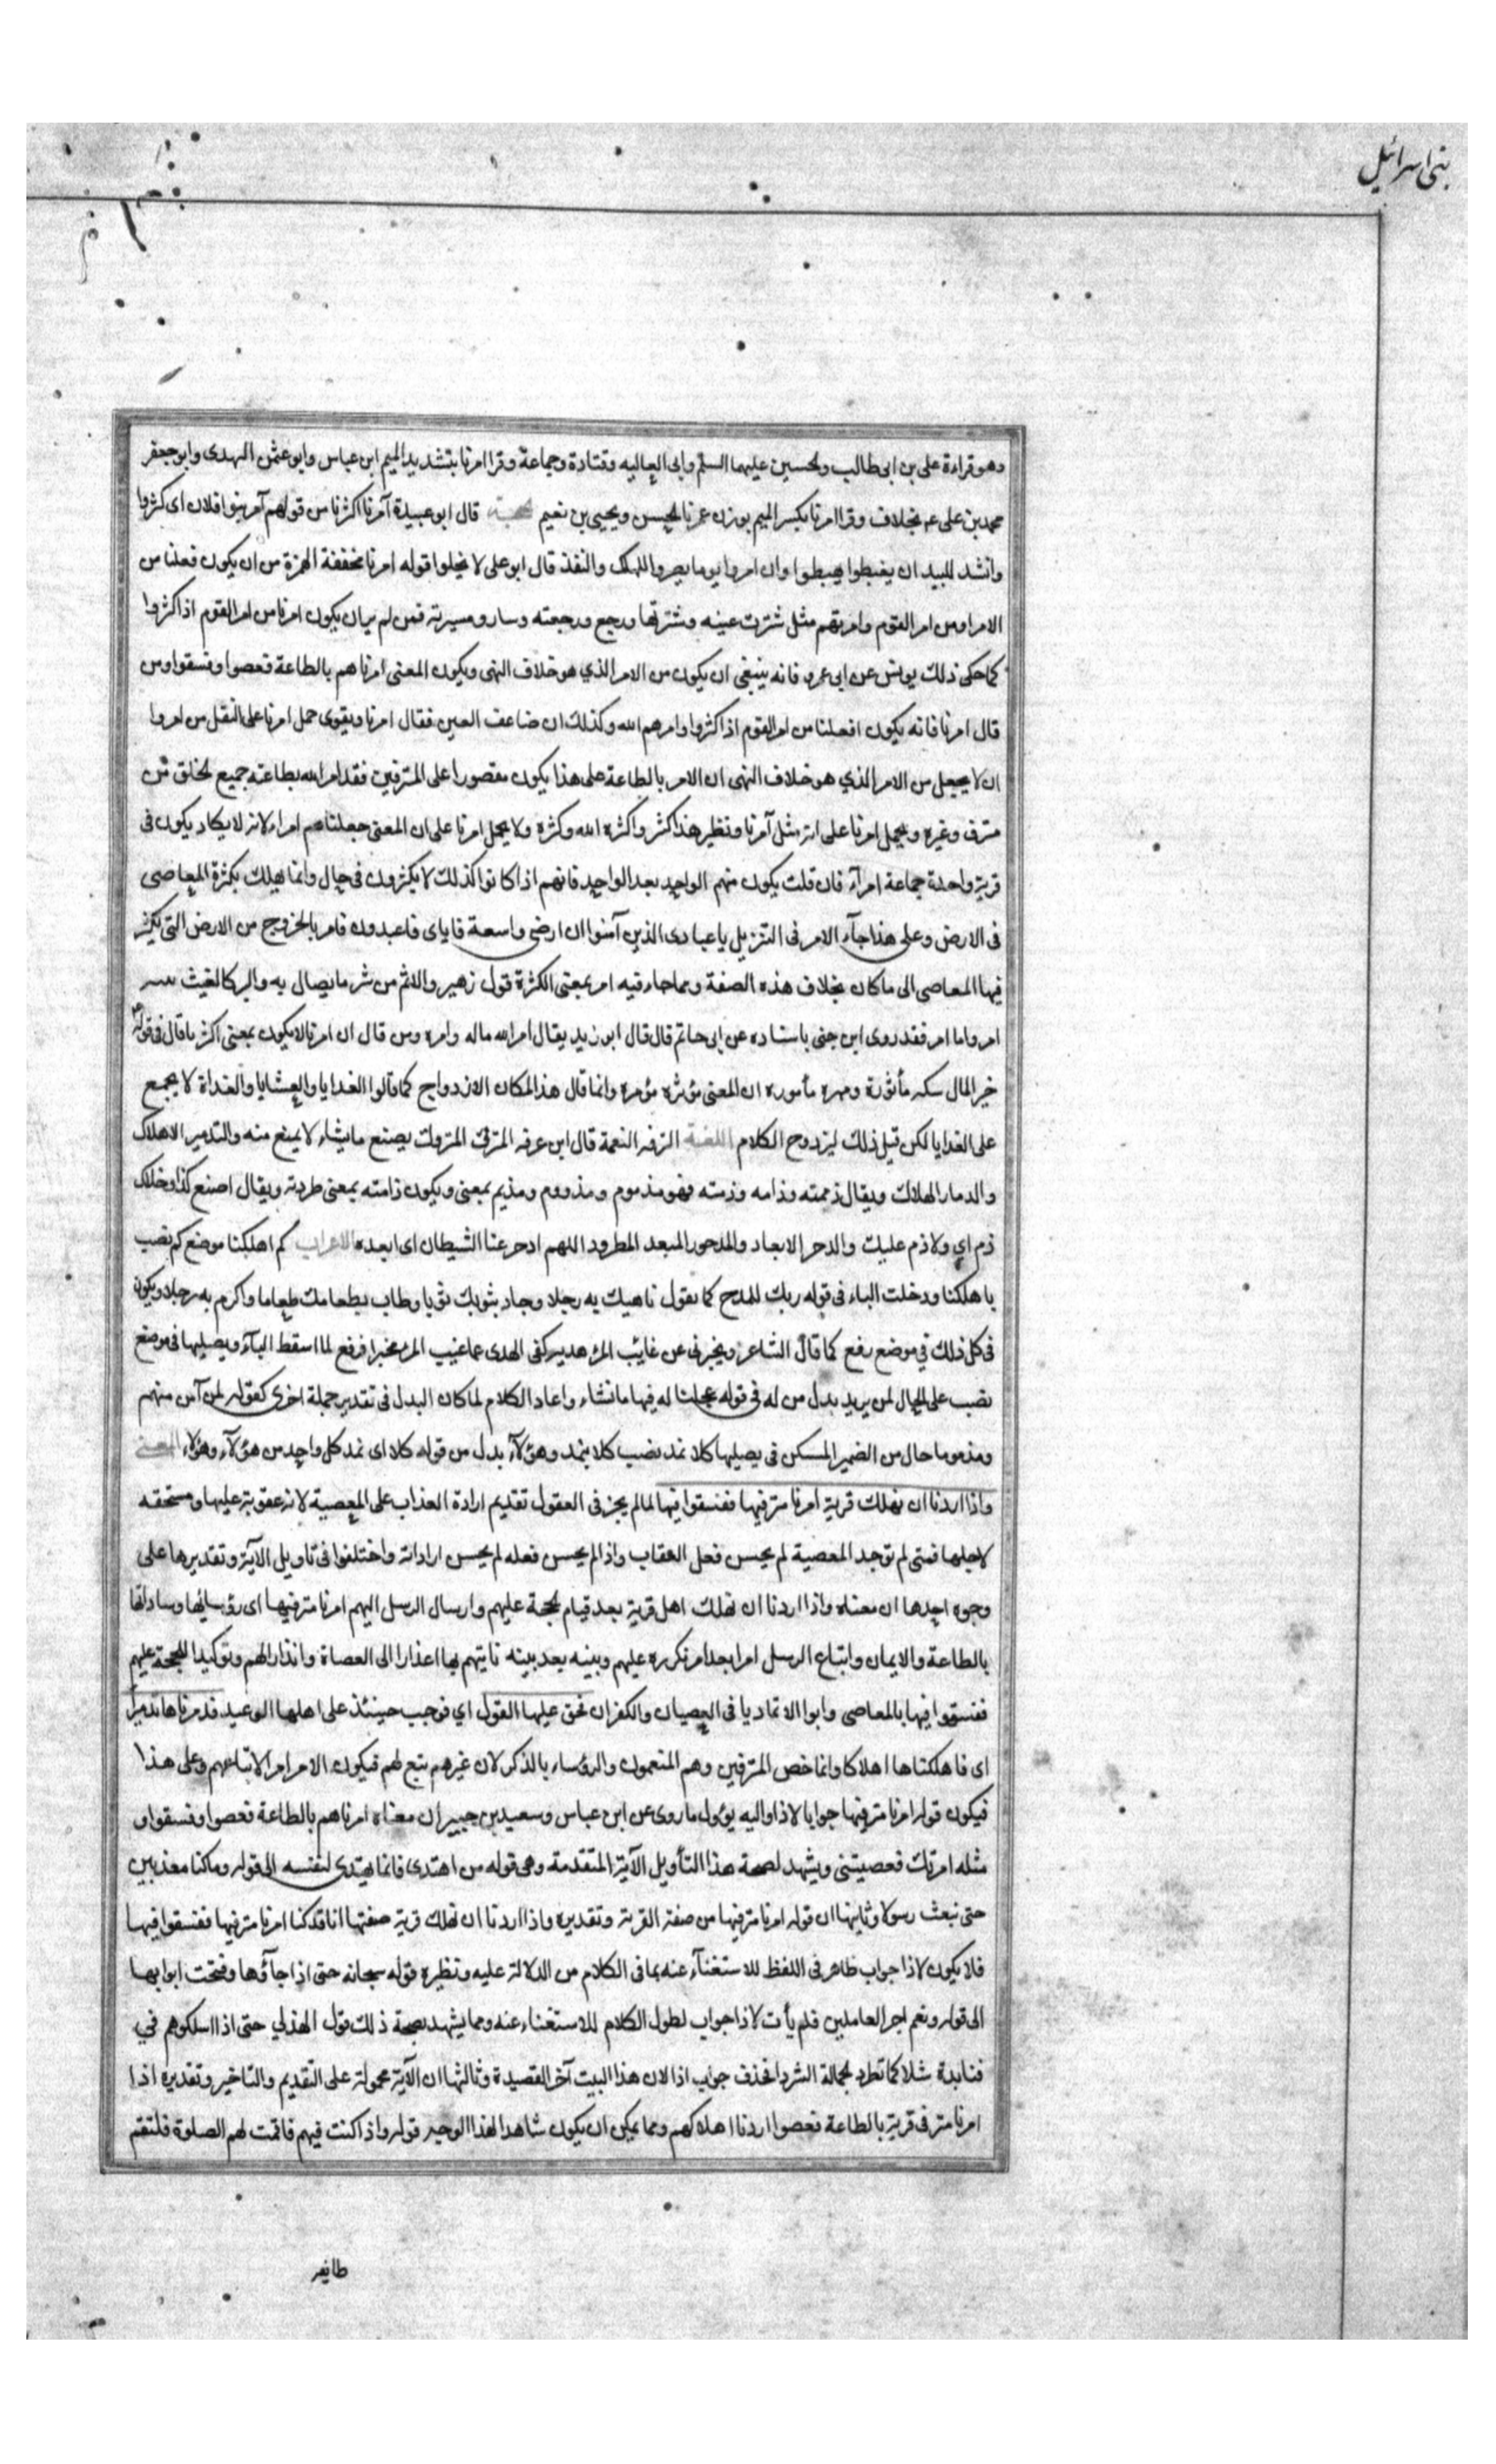 بنی اسرائیل
وهو قراءة على بن ابى طالب والحسين عليهما السلم وابى العاليه وقتادة وجماعة وقرا امرنا بتشديد الميم ابن عباس وابو عثمن النهدى وابو جعفر
محمد بن على عم بخلاف وقرا امرنا بكسر الميم بوزن عمرنا الحسن ويحيى بن نعيم الحجة قال ابو عبيدة آمرنا اكثرنا من قولهم آمر بنوا فلان اى كثروا
وانشد للبيد ان يغبطوا يهبطوا وان امروا يوما يصيروا للهلك والنفذ قال ابو على لا يخلوا قوله امرنا مخففة الهمزة من ان يكون فعلنا من
الامر او من امر القوم وامرتهم مثل شترت عينه وشترتها ورجع ورجعته وسار وسيرته فمن لم ير ان يكون امرنا من امر القوم اذا كثروا
كما حكى ذلك يونس عن ابى عمرو فانه ينبغى ان يكون من الامر الذي هو خلاف النهى ويكون المعنى امرناهم بالطاعة فعصوا وفسقوا ومن
قال امرنا فانه يكون افعلنا من امر القوم اذا كثروا وامرهم الله وكذلك ان ضاعف العين فقال امرنا ويقوى حمل امرنا على النقل من امروا
ان لا يجعل من الامر الذي هو خلاف النهى ان الامر بالطاعة على هذا يكون مقصورا على المترفين فقد امر الله بطاعته جميع الخلق من
مترف وغيره ويحمل امرنا على انه مثل آمرنا ونظير هذا كثر واكثره الله وكثره ولا يحمل امرنا على ان المعنى جعلناهم امراء لانه لا يكاد يكون فى
قرية واحدة جماعة امرآء فان قلت يكون منهم الواحد بعد الواحد فانهم اذا كانوا كذلك لا يكثرون فى حال وانما يهلك بكثرة المعاصى
فى الارض وعلى هذا جآء الامر فى التنزيل يا عبادى الذين آمنوا ان ارضى واسعة فاياى فاعبدون فامر بالخروج من الارض التى يكثر
فيها المعاصى الى ما كان بخلاف هذه الصفة ومما جاء فيه امر بمعنى الكثرة قول زهير والاثم من شر ما يصال به والبر كالغيث
امر واما امر فقد روى ابن جنى باسناده عن ابى حاتم قال قال ابو زيد يقال امر الله ماله وامره ومن قال ان امرنا لا يكون بمعنى اكثرنا قال فى قوله
خير المال سكه مأثورة ومهره مأموره ان المعنى مؤثره مؤمره وانما قال هذا لمكان الازدواج كما قالوا الغدايا والعشايا والغداة لا يجمع
على الغدايا لكن قيل ذلك ليزدوج الكلام اللغة الترفه النعمة قال ابن عرفه المترف المتروك يصنع ما يشاء لا يمنع منه والتدمير الاهلاك
والدمار الهلاك ويقال ذممته وذامه وذمته فهو مذموم ومذووم ومذيم بمعنى ويكون ذامته بمعنى طردته ويقال اصنع كذا وخلاك
ذم اي ولا ذم عليك والدحر الابعاد والمدحور المبعد المطرود اللهم ادحر عنا الشيطان اى ابعده الاعراب كم اهلكنا موضع كم نصب
باهلكنا ودخلت الباء فى قوله ربك للمدح كما تقول ناهيك به رجلا وجاد بثوبك ثوبا وطاب بطعامك طعاما واكرم به رجلا ويكون
فى كل ذلك في موضع رفع كما قال الشاعر ويخبرنى عن غائب المرء هديه كفى الهدى عما غيب المرء مخبرا فرفع لما اسقط البآء ويصليها فى موضع
نصب على الحال لمن يريد بدل من له فى قوله عجلنا له فيها ما نشاء واعاد الكلام لما كان البدل فى تقدير جملة اخرى كقوله لمن آمن منهم
ومذموما حال من الضمير المسكن فى يصليها كلا نمد نصب كلا بنمد وهؤلآء بدل من قوله كلا اى نمد كل واحد من هؤلآء وهؤلاء المعنى
واذا اردنا ان نهلك قرية امرنا مترفيها ففسقوا فيها لما لم يجز فى العقول تقديم ارادة العذاب على المعصية لانه عقوبة عليها ومستحقه
لاجلها فمتى لم توجد المعصية لم يحسن فعل العقاب واذا لم يحسن فعله لم يحسن ارادته واختلفوا فى تاويل الآية وتقديرها على
وجوه احدها ان معناه واذا اردنا ان نهلك اهل قرية بعد قيام الحجة عليهم وارسال الرسل اليهم امرنا مترفيها اى رؤساءها وساداتها
بالطاعة والايمان واتباع الرسل امرا بعد امر نكرره عليهم وبينه بعد بينه ناتيهم بها اعذارا الى العصاة وانذارا لهم وتوكيدا للحجة عليهم
ففسقوا فيها بالمعاصى وابوا الا تماديا فى العصيان والكفران فحق عليها القول اي فوجب حينئذ على اهلها الوعيد فدمرناها تدميرا
اى فاهلكناها اهلاكا وانما خص المترفين وهم المنعمون والرؤساء بالذكر لان غيرهم تبع لهم فيكون الامر امر الاتباعهم وعلى هذا
فيكون قوله امرنا مترفيها جوابا لاذا واليه يؤول ما روى عن ابن عباس وسعيد بن جبير ان معناه امرناهم بالطاعة فعصوا وفسقوا و
مثله امرتك فعصيتنى ويشهد لصحة هذا التأويل الآية المتقدمة وهى قوله من اهتدى فانما يهتدى لنفسه الى قوله وما كنا معذبين
حتى نبعث رسولا وثانيها ان قوله امرنا مترفيها من صفة القرية وتقديره واذا اردنا ان نهلك قرية صفتها انا قد كنا امرنا مترفيها ففسقوا فيها
فلا يكون لاذا جواب ظاهر فى اللفظ للاستغنآء عنه بما فى الكلام من الدلالة عليه ونظيره قوله سبحانه حتى اذا جآؤها وفتحت ابوابها
الى قوله ونعم اجر العاملين فلم يأت لاذا جواب لطول الكلام للاستغناء عنه ومما يشهد بصحة ذلك قول الهذلي حتى اذا اسلكوهم في
قتايدة شلا كما تطرد الجمالة الشردا فحذف جواب اذا لان هذا البيت آخر القصيدة وثالثها ان الآية محمولة على التقديم والتاخير وتقديره اذا
امرنا مترفى قرية بالطاعة فعصوا اردنا اهلاكهم ومما يمكن ان يكون شاهدا لهذا الوجه قوله واذا كنت فيهم فاقمت لهم الصلوة فلتقم
طايفه